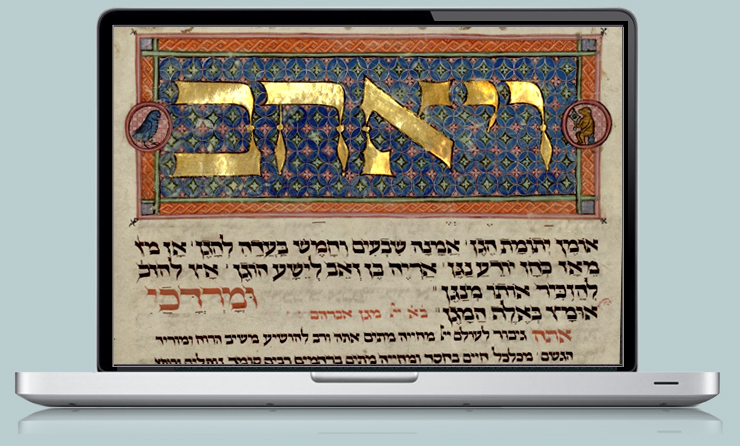 ויאהב
אומן יתומת הגן אמנה שבעים וחמש בעדה להגן אז
מאז יודע נגן אריה בן זאב לישע הוגן אץ
להזכיר אותי מנגן ומרדכי
אומץ באלת המגן בא״י מגן אברהם
אתה גיבור לעולם יי מחייה מתים אתה ורב להושיע משיב הרוח ומוריד
הגשם מכלכל חיים בחסד ומחייה מתים ברחמים רבים סומך נופלים